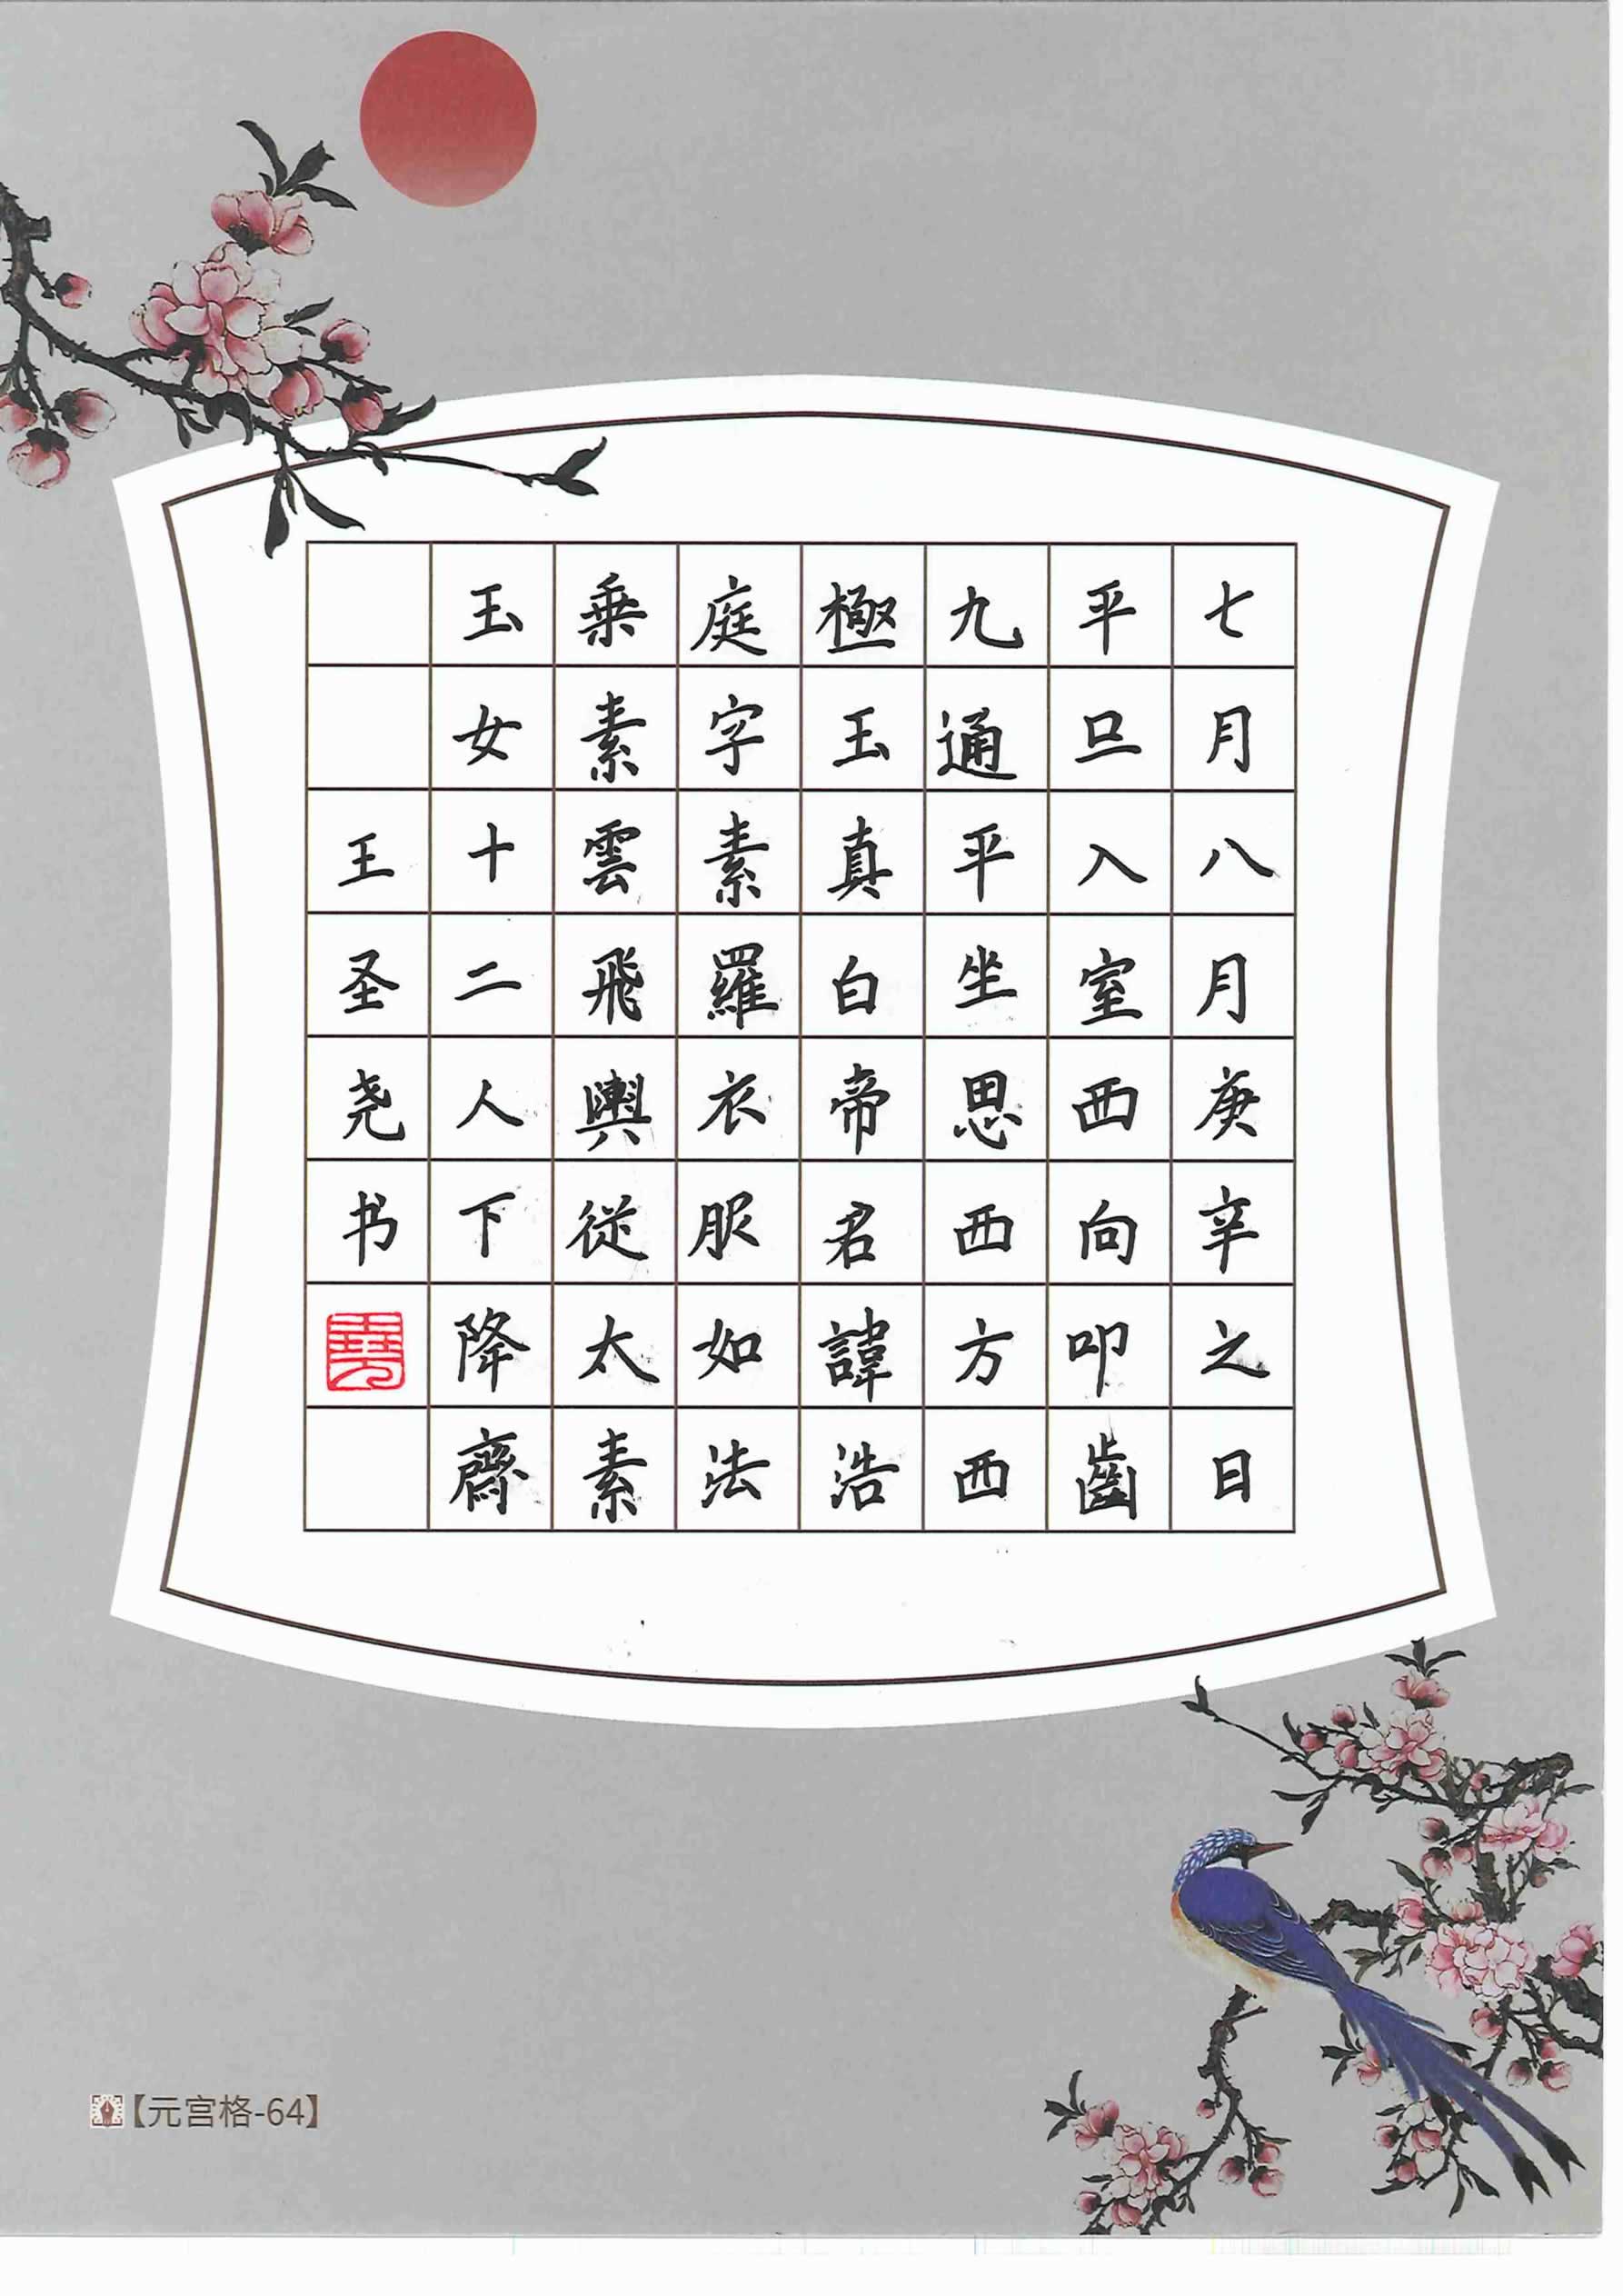 七月八月庚辛之日
平旦入室西向叩齒
九通平坐思西方西
極玉真白帝君諱浩
庭字素羅衣服如法
乗素雲飛輿從太素
玉女十二人下降齋
王圣尧书
【元宫格-64】